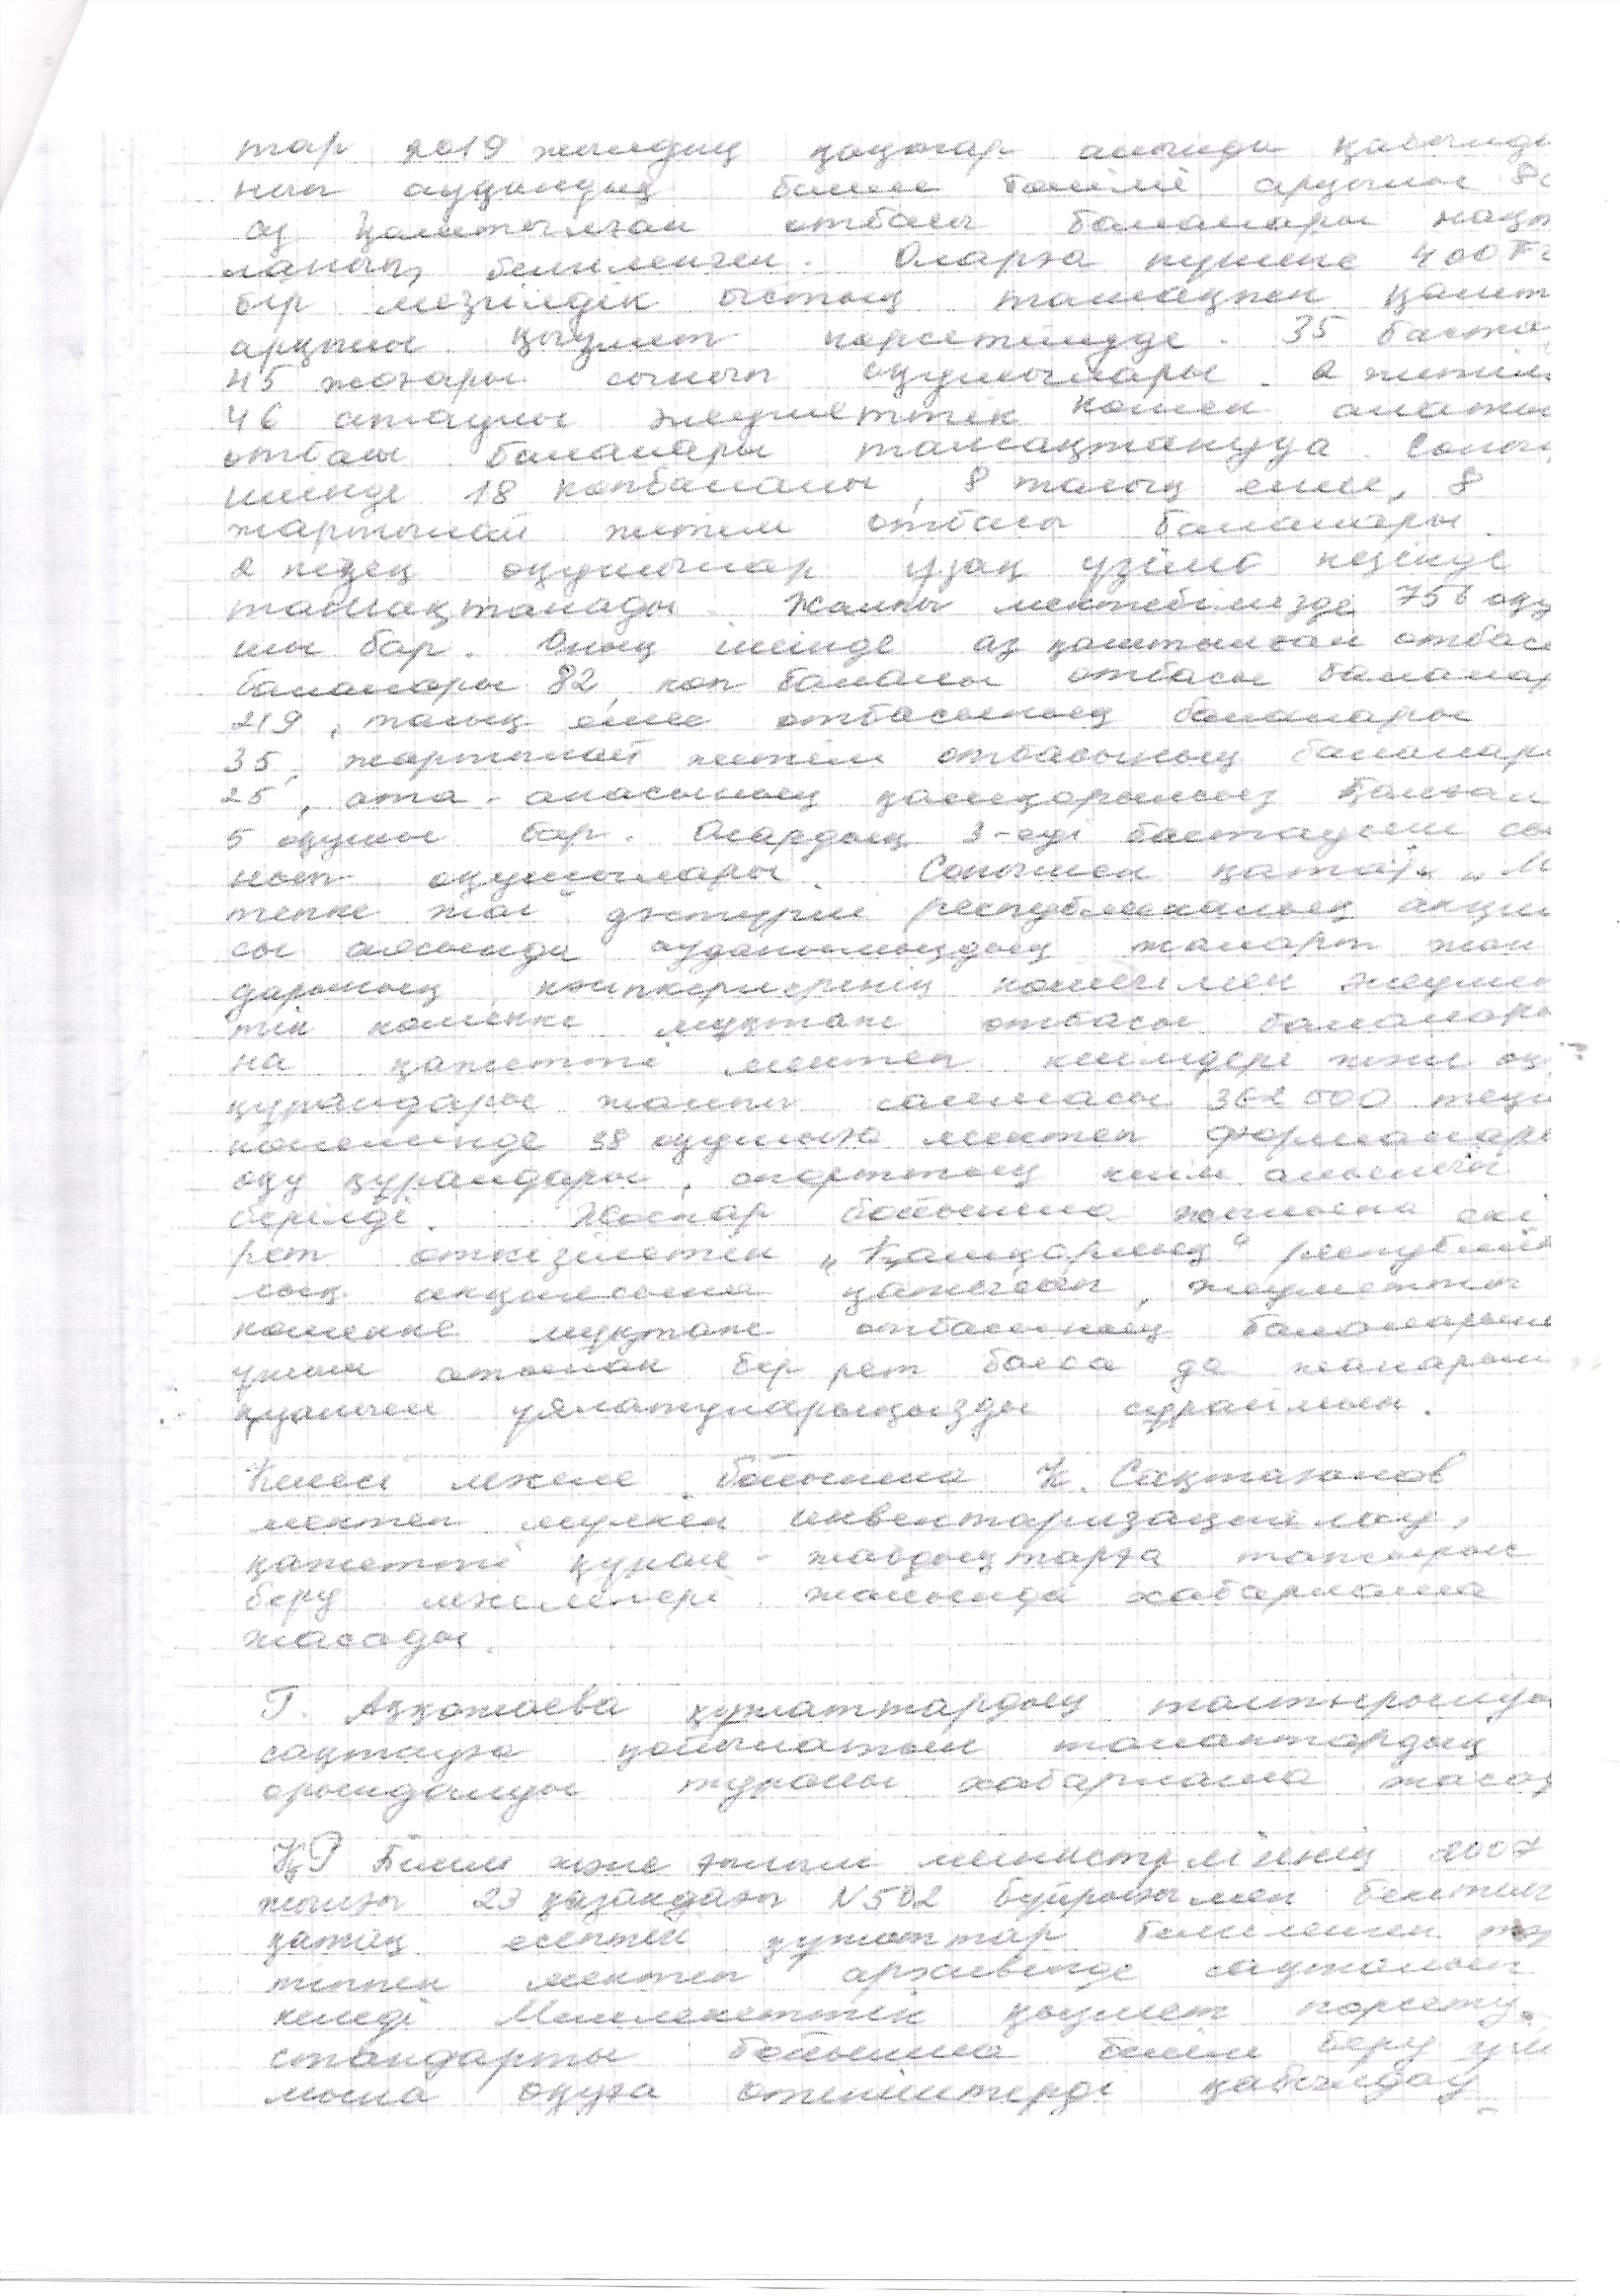 тар 2019 жылдың қаңтар айында қабылды
нып аудандық білім бөлімі арқылы 80
аз қамтылған отбасы балалары нақт
ланып, бекітілген. Оларға күніне 400 тг
бір мезгілдік ыстық тамақпен қамт
арқылы қызмет көрсетілуде. 35 баста
45 жоғары сынып оқушылары. 2 жетім
46 атаулы әлеуметтік көмек алаты
отбасы балалары тамақтануда. Соны
ішінде 18 көпбалалы, 8 толық емес, 8
жартылай жетім отбасы балалары.
2 кезең оқушылар ұзақ үзіліс кезінде
тамақтанады. Жалпы мектебімізде 756 оқу
шы бар. Оның ішінде аз қамтылған отбас
балалары 82, көп балалы отбасы балалар
219, толық емес отбасының балалары
35, жартылай жетім отбасының балалары
25, ата-анасының қамқорлығынсыз қалған
5 оқушы бар. Олардың 3-еуі бастауыш сы
нып оқушылары. Сонымен қатар, „М
тепке жол" дәстүрлі республикалық акция
сы аясында ауданымыздың жомарт жан
дарының, кәсіпкерлерінің көмегімен әлеумет
тік көмекке мұқтаж отбасы балалары
на қажетті мектеп киімдері және оқ
құралдары жалпы саны 362 500 теңг
көлемінде 38 оқушыға мектеп формалары
оқу құралдары, спорттық киім алынып
берілді. Жоспар бойынша жылына екі
рет өткізілетін „Қамқорлық" республик
лық акциясына қатысып, әлеуметтік
көмекке мұқтаж отбасының балалары
үшін атынан бір рет болса да жанарын
қуанышқа ұялатуларыңызды сұраймын.
Келесі мәселе бойынша К. Сақтағанов
мектеп мүлкін инвентаризациялау,
қажетті құрал-жабдықтарға тапсырыс
беру мәселелері жайында хабарлама
жасады.
Г. Аққожаева құжаттардың толтырылуы
сақтауға қойылатын талаптардың
орындалуы туралы хабарлама жасад
ҚР Білім және ғылым министрлігінің 2007
жылғы 23 қазандағы N502 бұйрығымен бекітілг
қатаң есептегі құжаттар белгіленген тәр
тіппен мектеп архивінде сақталып
келеді. Мемлекеттік қызмет көрсету
стандарты бойынша білім беру ұй
мына оқуға өтініштерді қабылдау